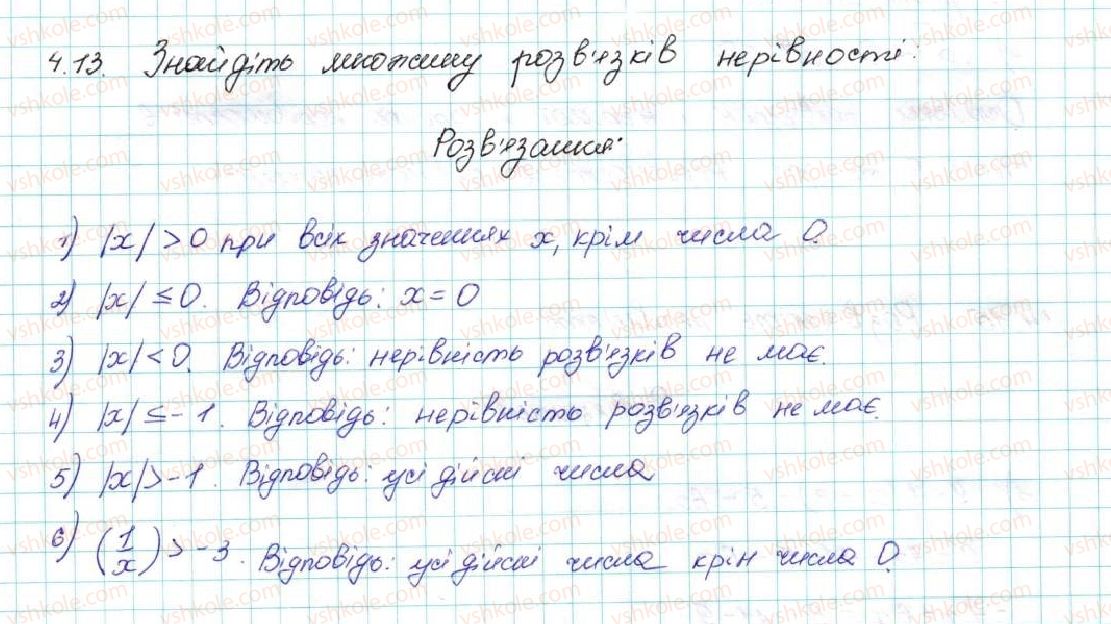 4.13. Знайдіть множину розв'язків нерівності:
Розв'язання:
1) |x| > 0 при всіх значеннях x, крім числа 0.
2) |x| ≤ 0. Відповідь: x = 0
3) |x| < 0. Відповідь: нерівність розв'язків не має.
4) |x| ≤ -1. Відповідь: нерівність розв'язків не має.
5) |x| > -1. Відповідь: усі дійсні числа
6) (1/x) > -3. Відповідь: усі дійсні числа крін числа 0.